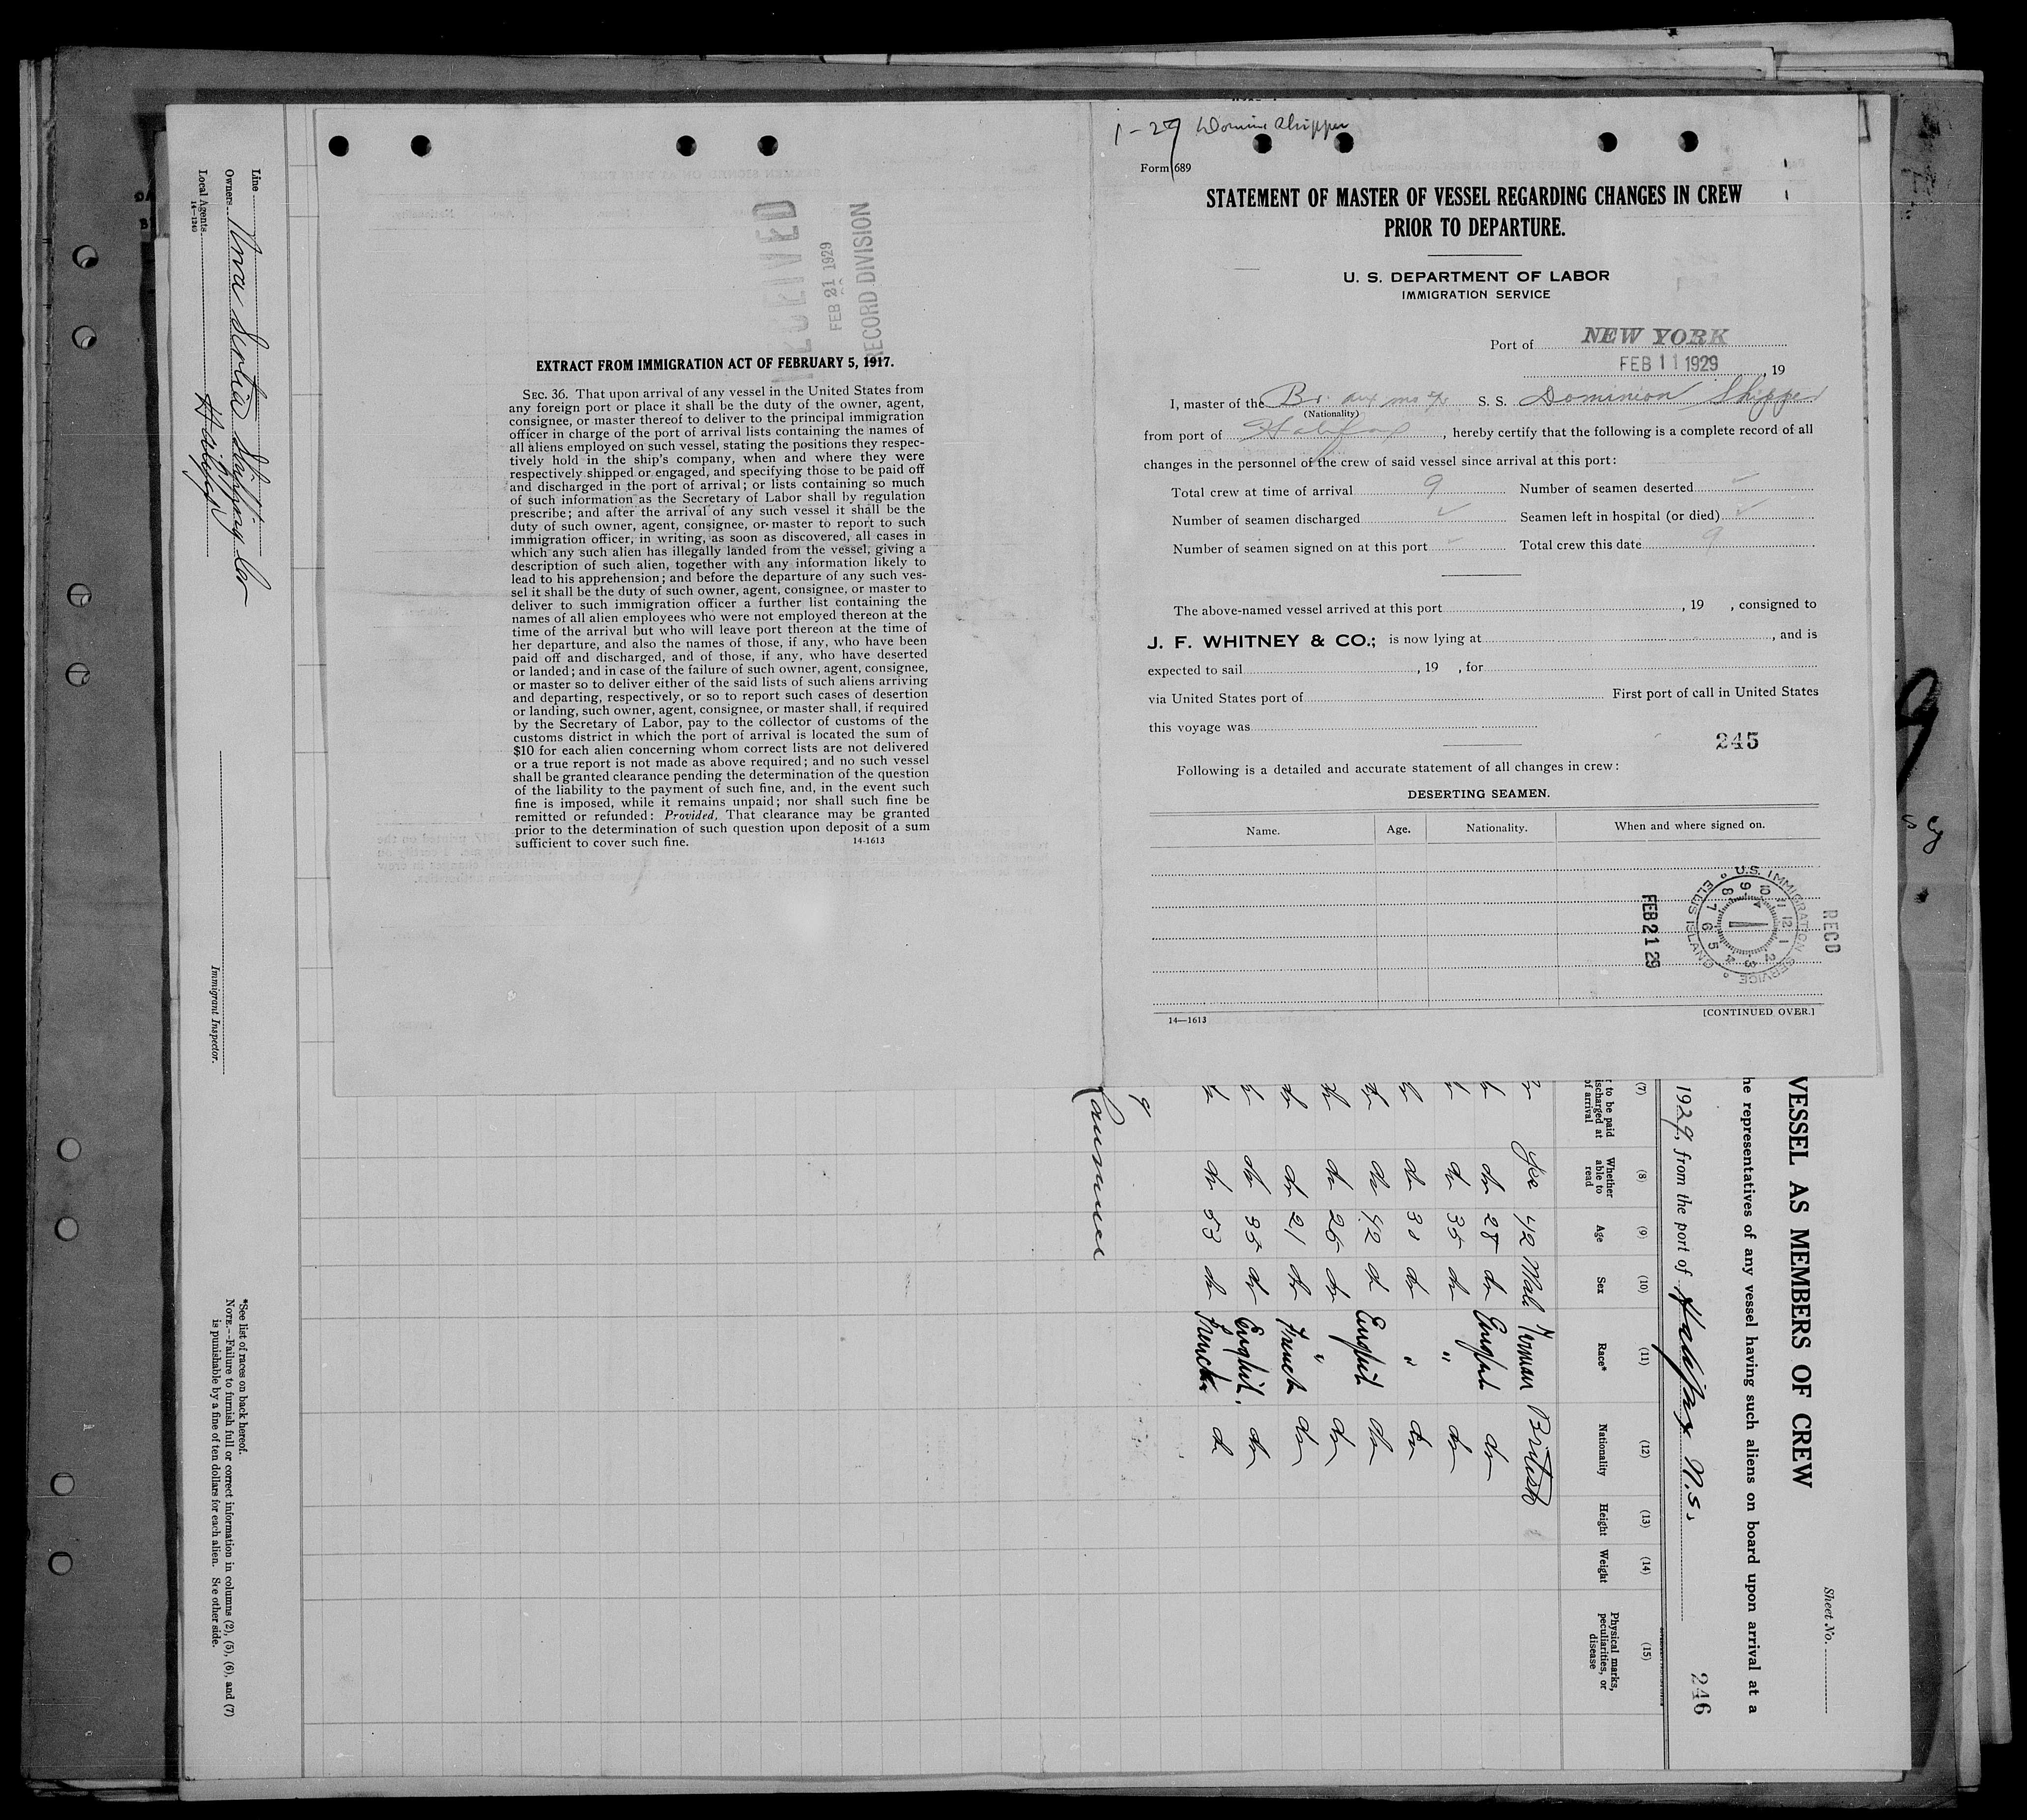 1-29 Dominion Shipper
Form 689
STATEMENT OF MASTER OF VESSEL REGARDING CHANGES IN CREW
PRIOR TO DEPARTURE.
U. S. DEPARTMENT OF LABOR
IMMIGRATION SERVICE
Port of NEW YORK
FEB 11 1929, 19
I, master of the Br. aux S. S. Dominion Shipper
(Nationality)
from port of Halifax, hereby certify that the following is a complete record of all
changes in the personnel of the crew of said vessel since arrival at this port:
Total crew at time of arrival 9 Number of seamen deserted
Number of seamen discharged Seamen left in hospital (or died)
Number of seamen signed on at this port Total crew this date 9
The above-named vessel arrived at this port , 19 , consigned to
J. F. WHITNEY & CO.; is now lying at , and is
expected to sail , 19 , for
via United States port of First port of call in United States
this voyage was
245
Following is a detailed and accurate statement of all changes in crew:
DESERTING SEAMEN.
Name. Age. Nationality. When and where signed on.
RECD
U.S. IMMIGRATION SERVICE ELLIS ISLAND
FEB 21 29
14—1613 [CONTINUED OVER.]
RECEIVED
FEB 21 1929
RECORD DIVISION
EXTRACT FROM IMMIGRATION ACT OF FEBRUARY 5, 1917.
SEC. 36. That upon arrival of any vessel in the United States from
any foreign port or place it shall be the duty of the owner, agent,
consignee, or master thereof to deliver to the principal immigration
officer in charge of the port of arrival lists containing the names of
all aliens employed on such vessel, stating the positions they respec-
tively hold in the ship's company, when and where they were
respectively shipped or engaged, and specifying those to be paid off
and discharged in the port of arrival; or lists containing so much
of such information as the Secretary of Labor shall by regulation
prescribe; and after the arrival of any such vessel it shall be the
duty of such owner, agent, consignee, or master to report to such
immigration officer, in writing, as soon as discovered, all cases in
which any such alien has illegally landed from the vessel, giving a
description of such alien, together with any information likely to
lead to his apprehension; and before the departure of any such ves-
sel it shall be the duty of such owner, agent, consignee, or master to
deliver to such immigration officer a further list containing the
names of all alien employees who were not employed thereon at the
time of the arrival but who will leave port thereon at the time of
her departure, and also the names of those, if any, who have been
paid off and discharged, and of those, if any, who have deserted
or landed; and in case of the failure of such owner, agent, consignee,
or master so to deliver either of the said lists of such aliens arriving
and departing, respectively, or so to report such cases of desertion
or landing, such owner, agent, consignee, or master shall, if required
by the Secretary of Labor, pay to the collector of customs of the
customs district in which the port of arrival is located the sum of
$10 for each alien concerning whom correct lists are not delivered
or a true report is not made as above required; and no such vessel
shall be granted clearance pending the determination of the question
of the liability to the payment of such fine, and, in the event such
fine is imposed, while it remains unpaid; nor shall such fine be
remitted or refunded: Provided, That clearance may be granted
prior to the determination of such question upon deposit of a sum
sufficient to cover such fine. 14-1613
Sheet No.
VESSEL AS MEMBERS OF CREW
he representatives of any vessel having such aliens on board upon arrival at a
1929, from the port of Halifax N.S. 246
(7) (8) (9) (10) (11) (12) (13) (14) (15)
t to be paid
ischarged at
of arrival
Whether
able to
read
Age
Sex
Race*
Nationality
Height
Weight
Physical marks,
peculiarities, or
disease
Yes 42 Male British
do do 28 do English do
do 35 do " do
do do 30 do " do
do do 42 do English do
do do 26 do " do
do do 21 do French do
do 35 do English do
do 53 do French do
9
Line
Owners Nova Scotia Shipping Co
Local Agents Halifax
14—1240
Immigrant Inspector.
*See list of races on back hereof.
NOTE.—Failure to furnish full or correct information in columns (2), (5), (6), and (7)
is punishable by a fine of ten dollars for each alien. See other side.